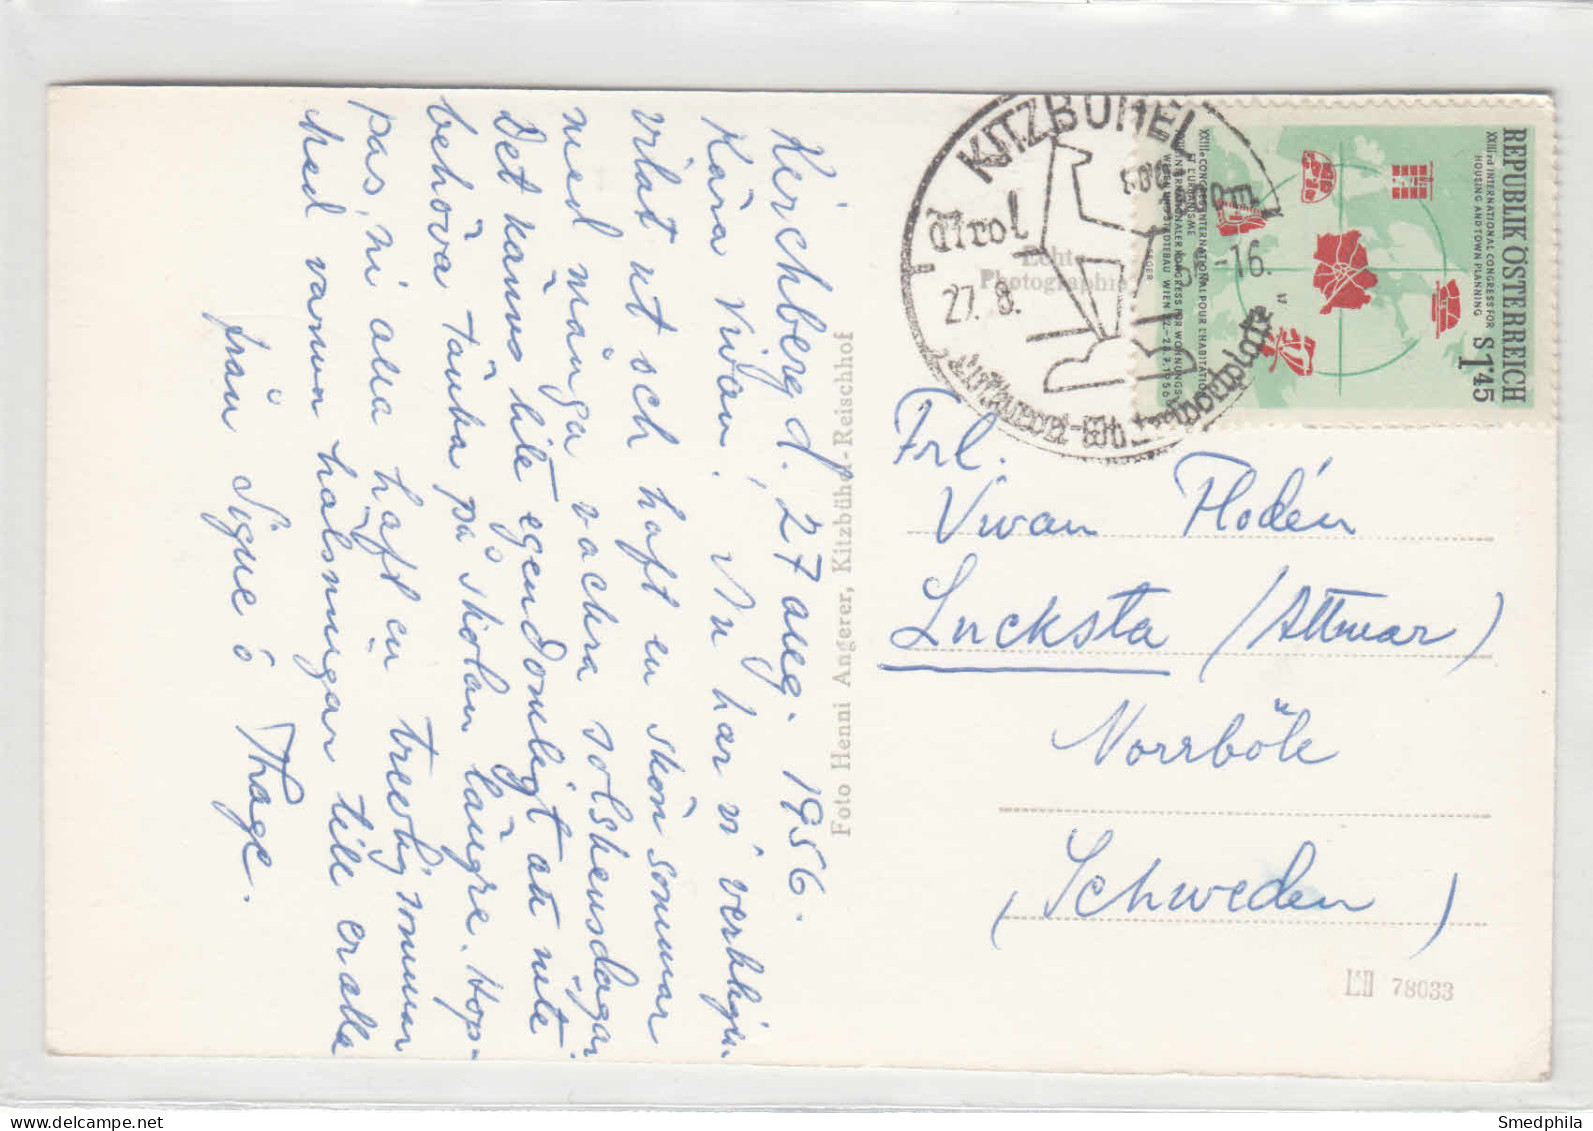 Kirchberg d. 27 aug. 1956.
Kära Vivan! Nu har vi verkligen
vilat ut och haft en skön sommar
med många vackra solskensdagar.
Det känns lite egendomligt att inte
behöva tänka på skolan längre. Hop-
pas, ni alla haft en trevlig sommar
Med varma hälsningar till er alla
från Signe o Thage.
Foto Henni Angerer, Kitzbühel-Reischhof
Echte
Photographie
KITZBÜHEL
Tirol
27. 8.
-16.
REPUBLIK ÖSTERREICH
XXIIIrd INTERNATIONAL CONGRESS FOR
HOUSING AND TOWN PLANNING
S 1'45
XXIIIe CONGRES INTERNATIONAL POUR L'HABITATION
ET L'URBANISME
XXIII INTERNATIONALER KONGRESS FÜR WOHNUNGS-
WESEN UND STÄDTEBAU WIEN 22.-28.7.1956
Frl.
Vivan Flodén
Lucksta (Attmar)
Norrböle
(Schweden)
78033
Smedphila